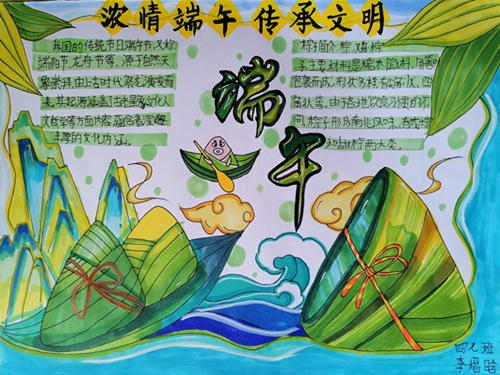 浓情端午 传承文明
我国的传统节日端午节,又称
端阳节、龙舟节等。源于自然天
象崇拜,由上古时代祭龙演变而
来。其起源涵盖古老星象文化人
文哲学等方面内容,蕴含着深邃
丰厚的文化内涵。
粽子简介:粽,粽
子主要材料是糯米、馅料,用箬叶
包裹而成,形状多样,有尖角状、四
角状等。由于各地饮食习惯的不
同,粽子形成南北风味,有咸粽
和甜粽两大类。
端午
班
李熠晗